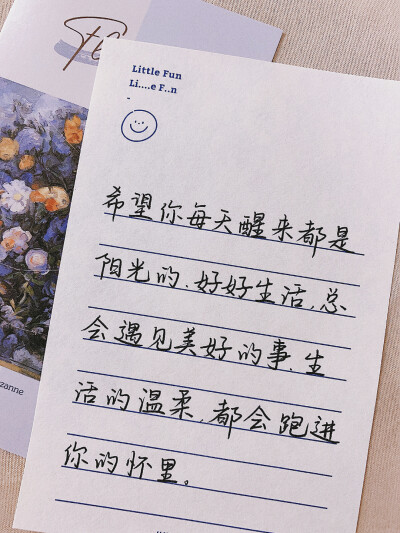 Little Fun
Li....e F..n
-
希望你每天醒来都是
阳光的、好好生活,总
会遇见美好的事、生
活的温柔,都会跑进
你的怀里。
zanne